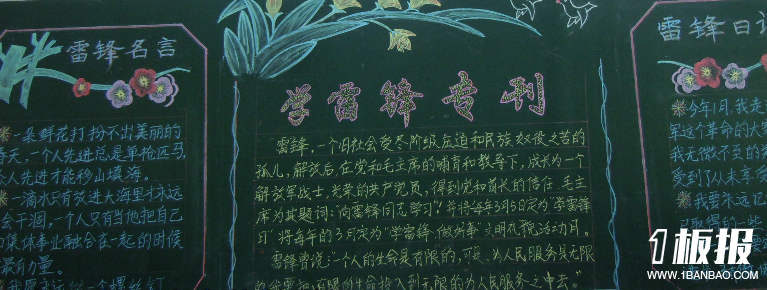 雷锋名言
※一朵鲜花打扮不出美丽的
春天,一个人先进总是单枪匹马,
人人先进才能移山填海。
※一滴水只有放进大海里才永远
会干涸,一个人只有当他把自己
集体事业融合在一起的时候
最有力量。
一个螺丝钉
学雷锋专刊
雷锋,一个旧社会受尽阶级压迫和民族奴役之苦的
孤儿,解放后,在党和毛主席的哺育和教导下,成长为一个
解放军战士,光荣的共产党员,得到党和首长的信任。毛主
席为其题词:“向雷锋同志学习”!并将每年3月5日定为“学雷锋
日”将每年的3月定为“学雷锋、做好事”文明礼貌活动月。
雷锋曾说:“个人的生命是有限的,可是,为人民服务是无限
的,我要把有限的生命投入到无限的为人民服务之中去。”
雷锋日记
※今年1月,我走
军这个革命的大家
我无微不至的
受到了从未享受
※我要永远记
取得的一些
1板报
WWW.1BANBAO.COM